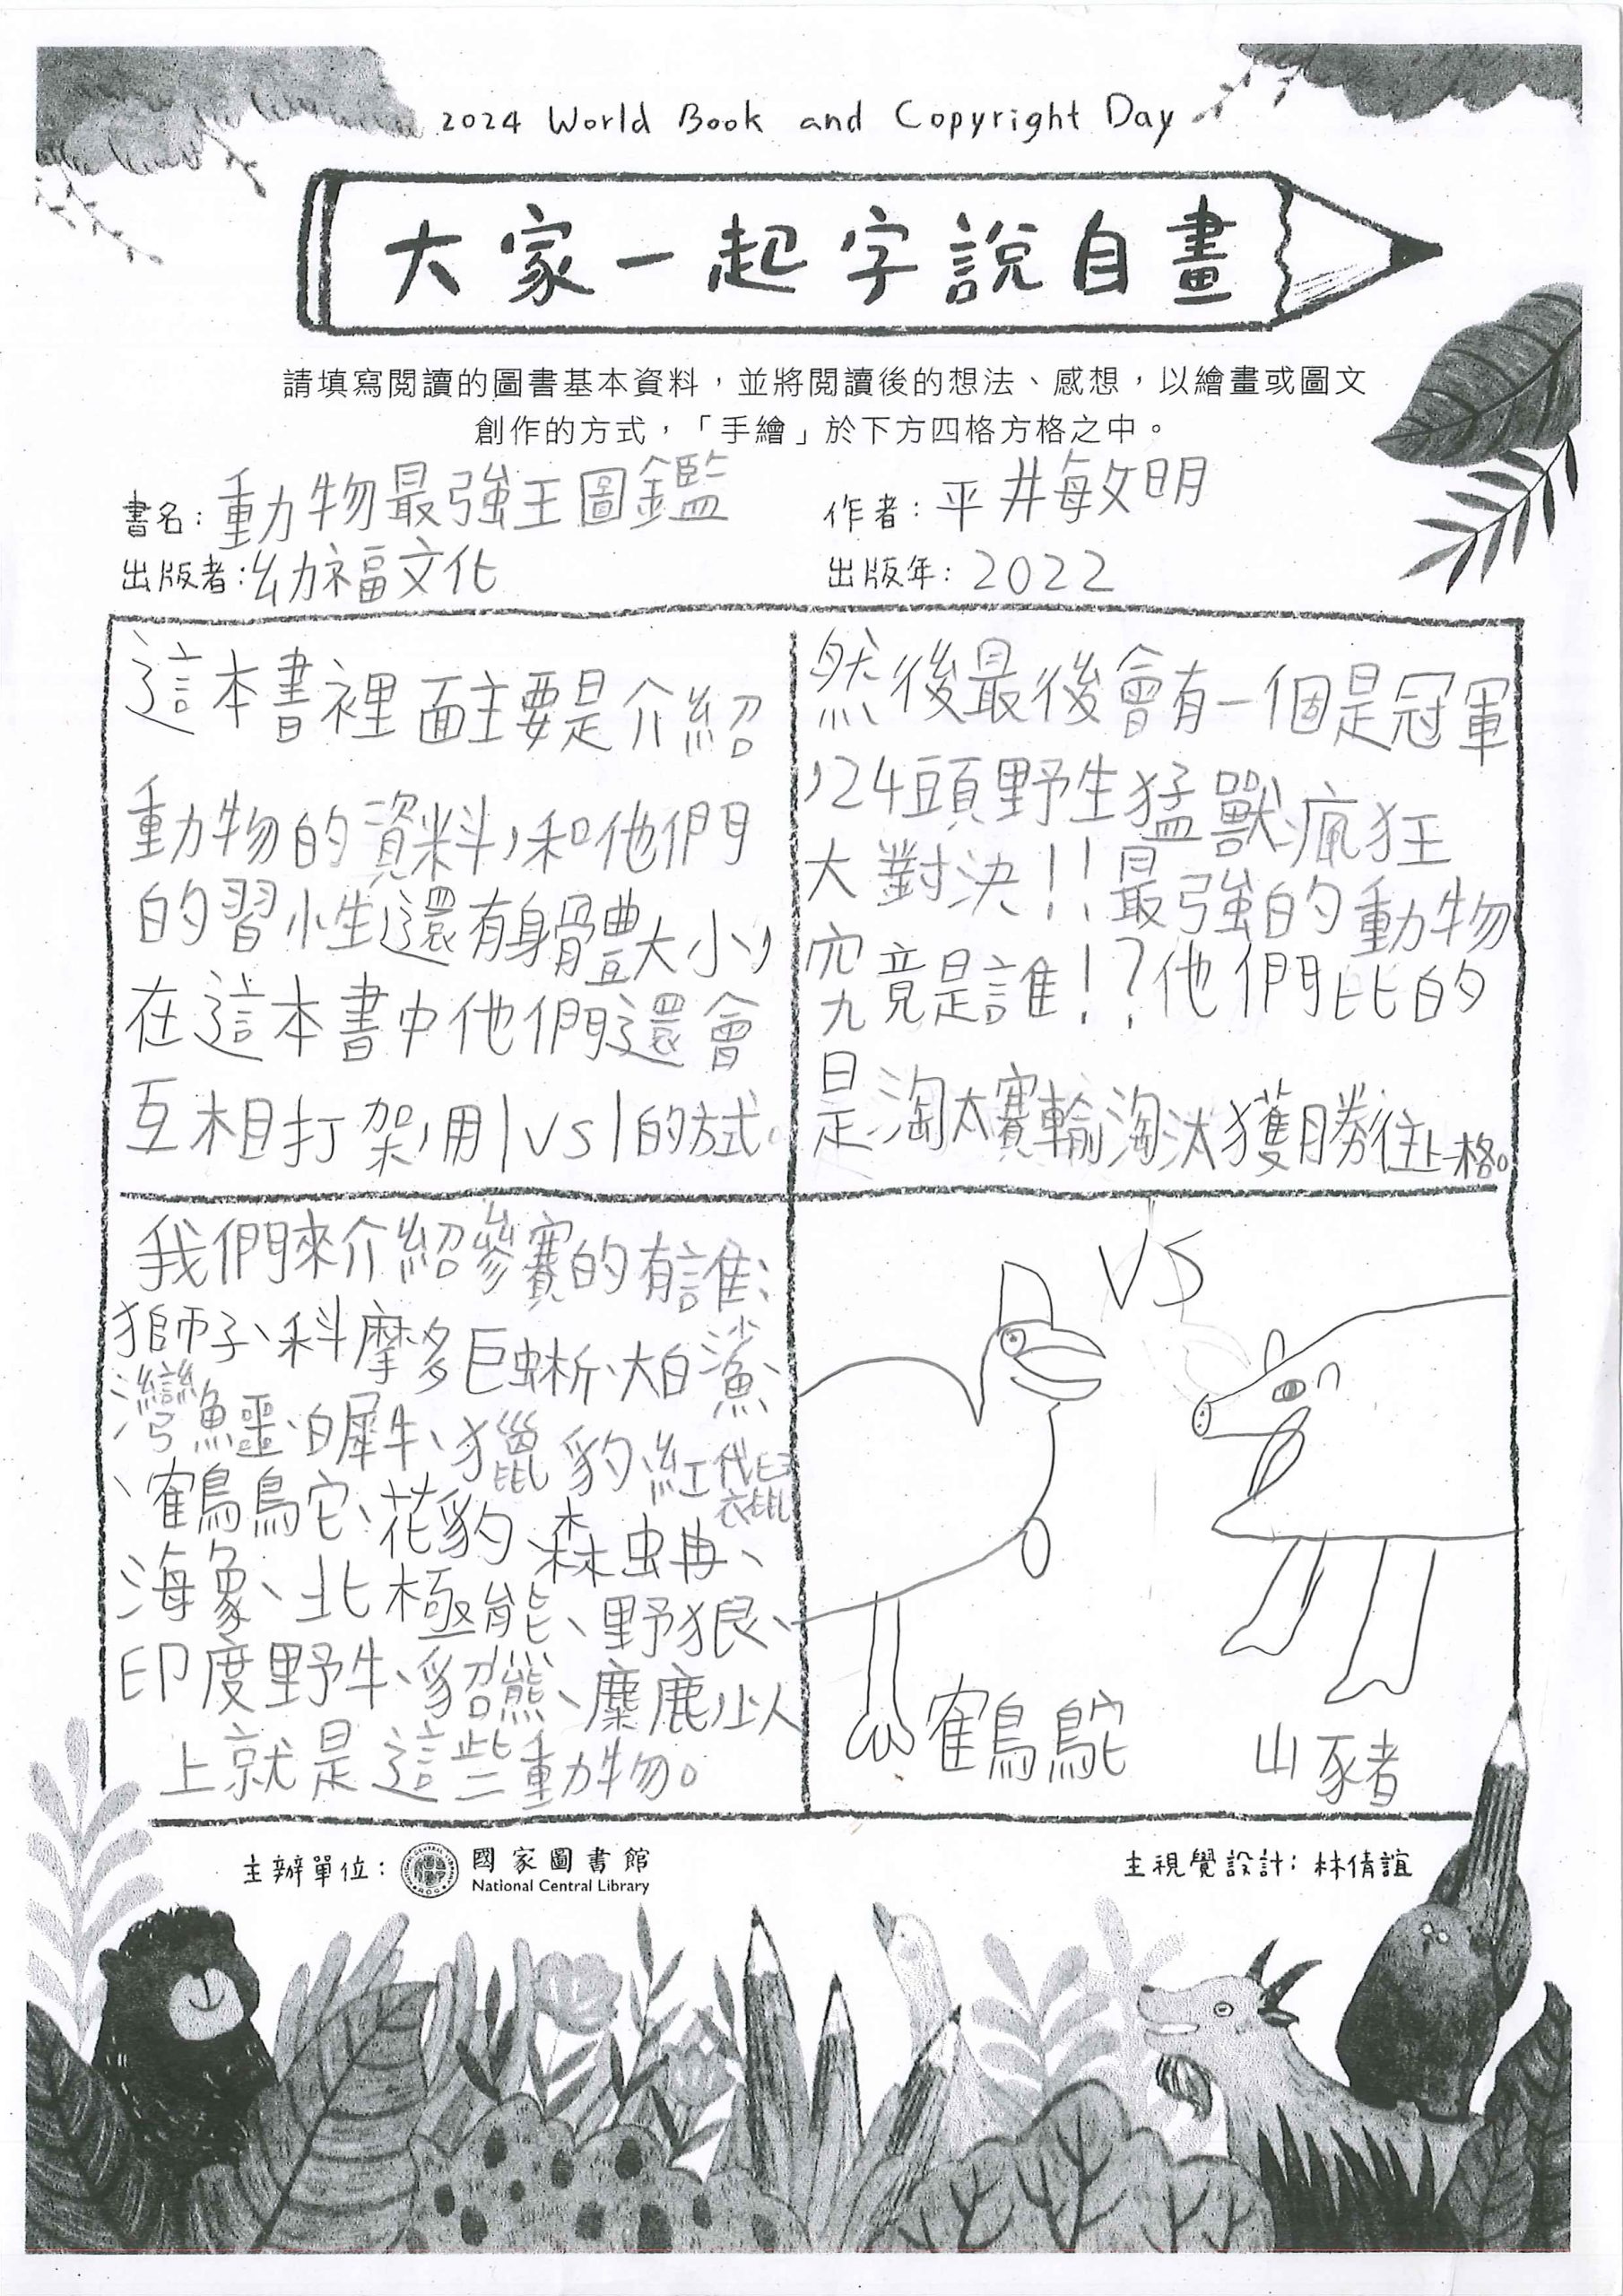 2024 World Book and Copyright Day
大家一起字說自畫
請填寫閱讀的圖書基本資料，並將閱讀後的想法、感想，以繪畫或圖文
創作的方式，「手繪」於下方四格方格之中。
書名：動物最強王圖鑑
作者：平井敏明
出版者：幼福文化
出版年：2022
這本書裡面主要是介紹
動物的資料，和他們
的習性還有身體大小，
在這本書中他們還會
互相打架，用1vs1的方式。
然後最後會有一個是冠軍
，24頭野生猛獸瘋狂
大對決！！最強的動物
究竟是誰！？他們比的
是淘太賽輸淘汰獲勝往上一格。
我們來介紹參賽的有誰：
獅子、科摩多巨蜥、大白鯊、
灣鱷、白犀牛、獵豹、紅袋鼠
、鶴鳥鴕、花豹、森蚺、
海象、北極熊、野狼、
印度野牛、貂熊、麋鹿，以
上就是這些動物。
VS
鶴鴕
山豬
主辦單位：國家圖書館
National Central Library
主視覺設計：林倩誼